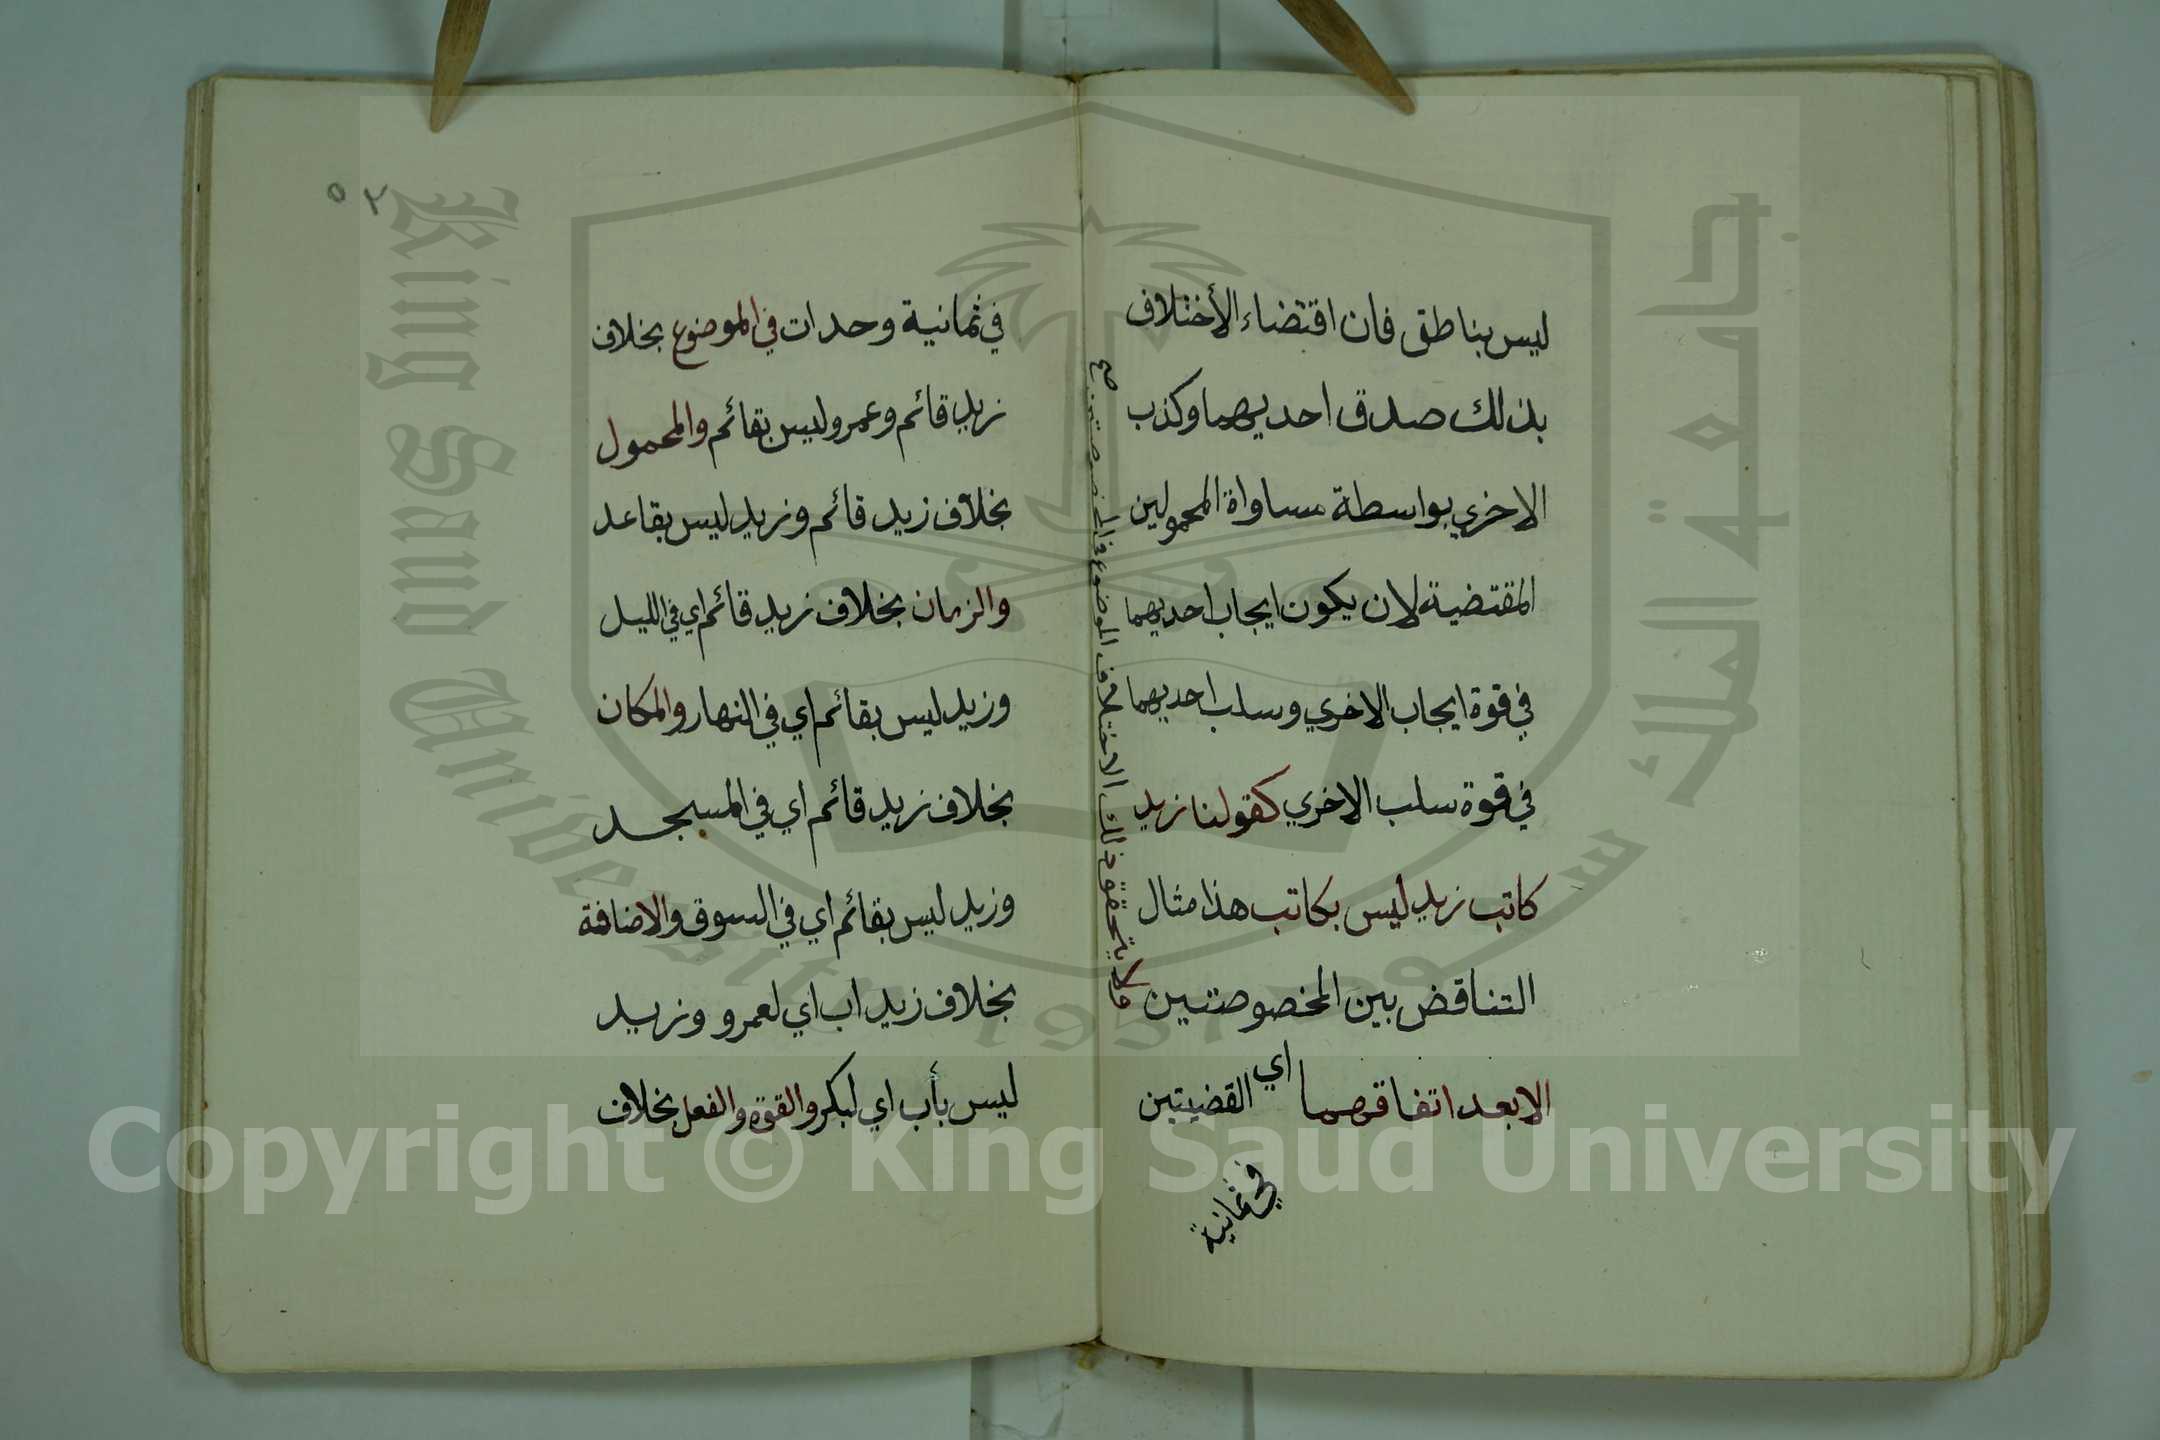 ليس بناطق فان اقتضاء الأختلاف
بذلك صدق احديهما وكذب
الاخري بواسطة مساواة المحمولين
المقتضية لان يكون ايجاب احديهما
في قوة ايجاب الاخري وسلب احديهما
في قوة سلب الاخري كقولنا زيد
كاتب زيد ليس بكاتب هذا مثال
التناقض بين المخصوصتين
ولا يتحقق ذلك الاختلاف الموضوع في المخصوصتين صح
الا بعد اتفاقهما اي القضيتين
في ثمانية
٥٢
في ثمانية وحدات في الموضوع بخلاف
زيد قائم وعمرو ليس بقائم والمحمول
بخلاف زيد قائم وزيد ليس بقاعد
والزمان بخلاف زيد قائم اي في الليل
وزيد ليس بقائم اي في النهار والمكان
بخلاف زيد قائم اي في المسجد
وزيد ليس بقائم اي في السوق والاضافة
بخلاف زيد اب اي لعمرو وزيد
ليس بأب اي لبكر والقوة والفعل بخلاف
جامعة الملك سعود
King Saud University
1957
Copyright © King Saud University